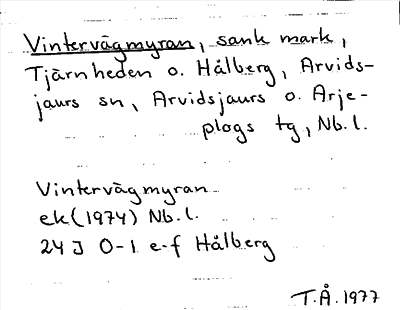 Vintervägmyran, sank mark,
Tjärnheden o. Hålberg, Arvids-
jaurs sn, Arvidsjaurs o. Arje-
plogs tg, Nb.l.
Vintervägmyran
ek (1974) Nb.l.
24 J 0-1 e-f Hålberg
T.Å. 1977